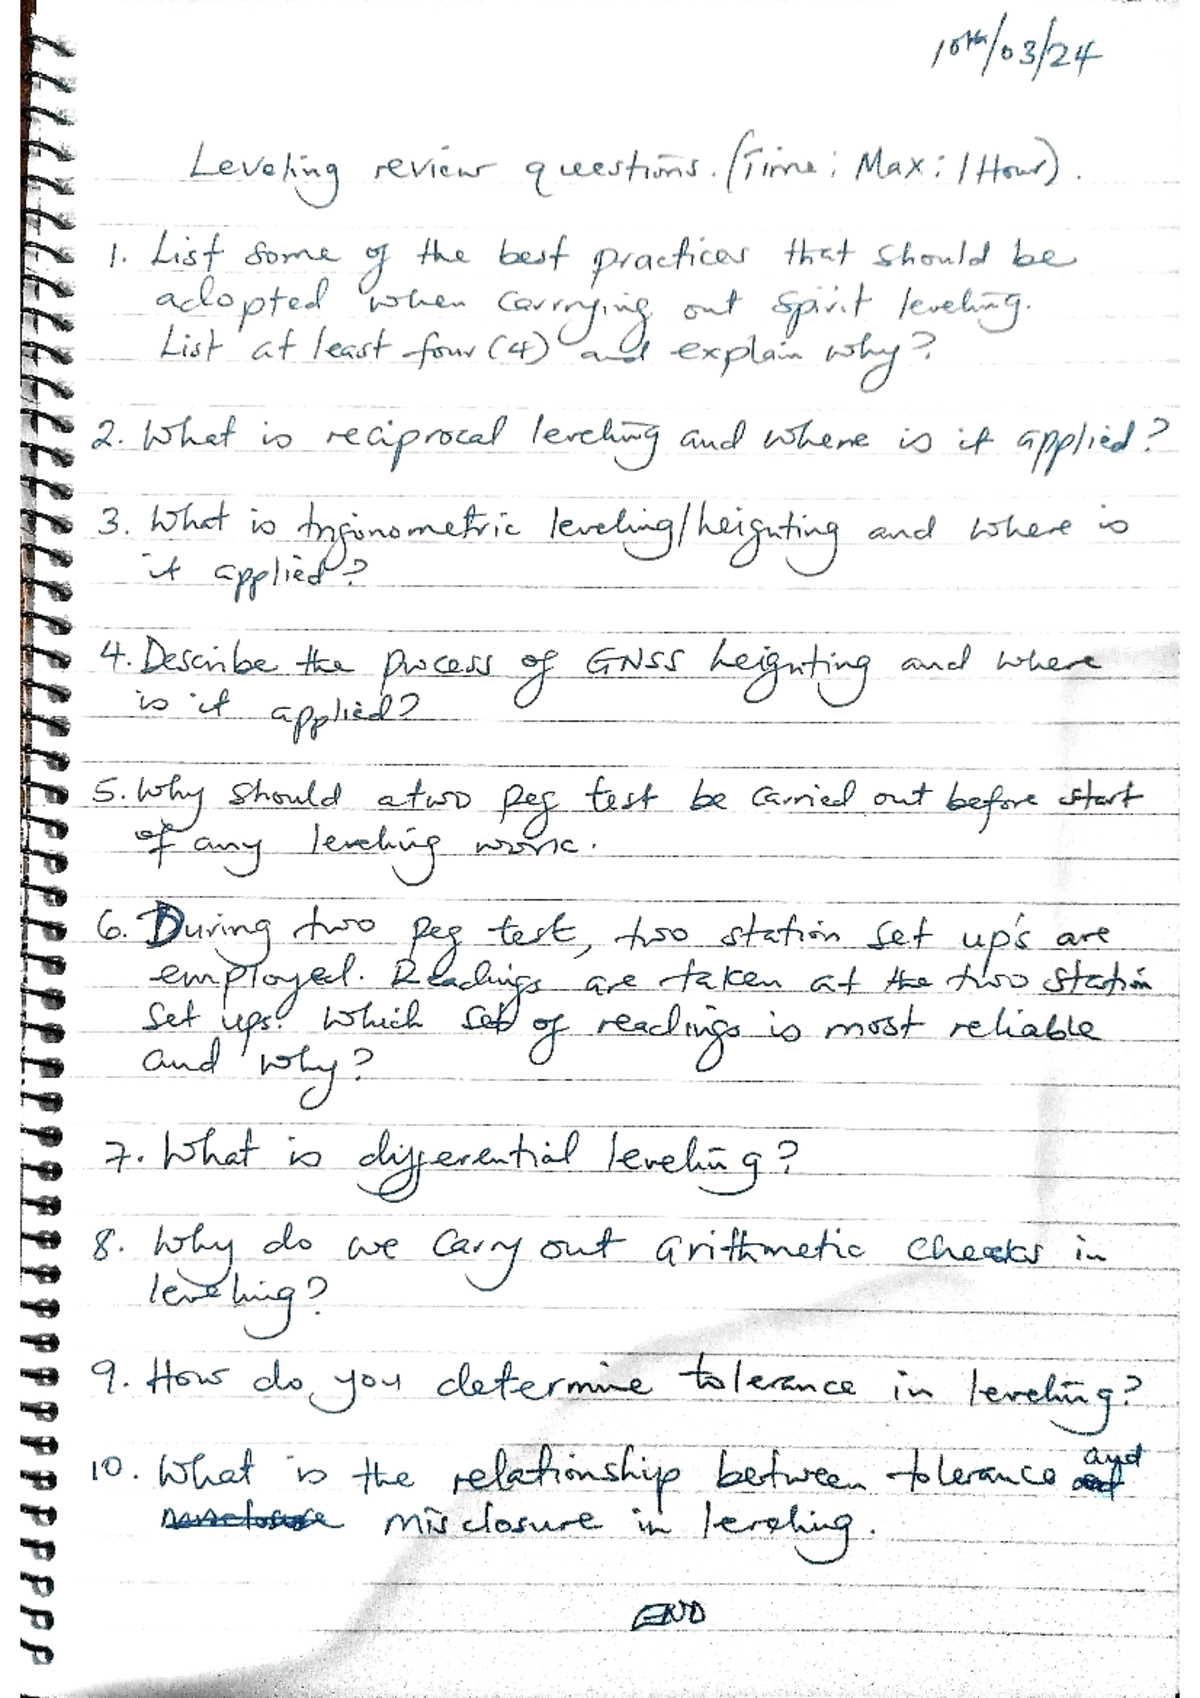 10th/03/24
Leveling review questions. (Time: Max: 1 Hour).
1. List some of the best practices that should be
adopted when carrying out spirit leveling.
List at least four (4) and explain why?
2. What is reciprocal leveling and where is it applied?
3. What is trigonometric leveling/heighting and where is
it applied?
4. Describe the process of GNSS heighting and where
is it applied?
5. Why should a two peg test be carried out before start
of any leveling work.
6. During two peg test, two station set up's are
employed. Readings are taken at the two station
set ups. Which set of readings is most reliable
and why?
7. What is differential leveling?
8. Why do we carry out arithmetic checks in
leveling?
9. How do you determine tolerance in leveling?
10. What is the relationship between tolerance and
misclosure in leveling.
END